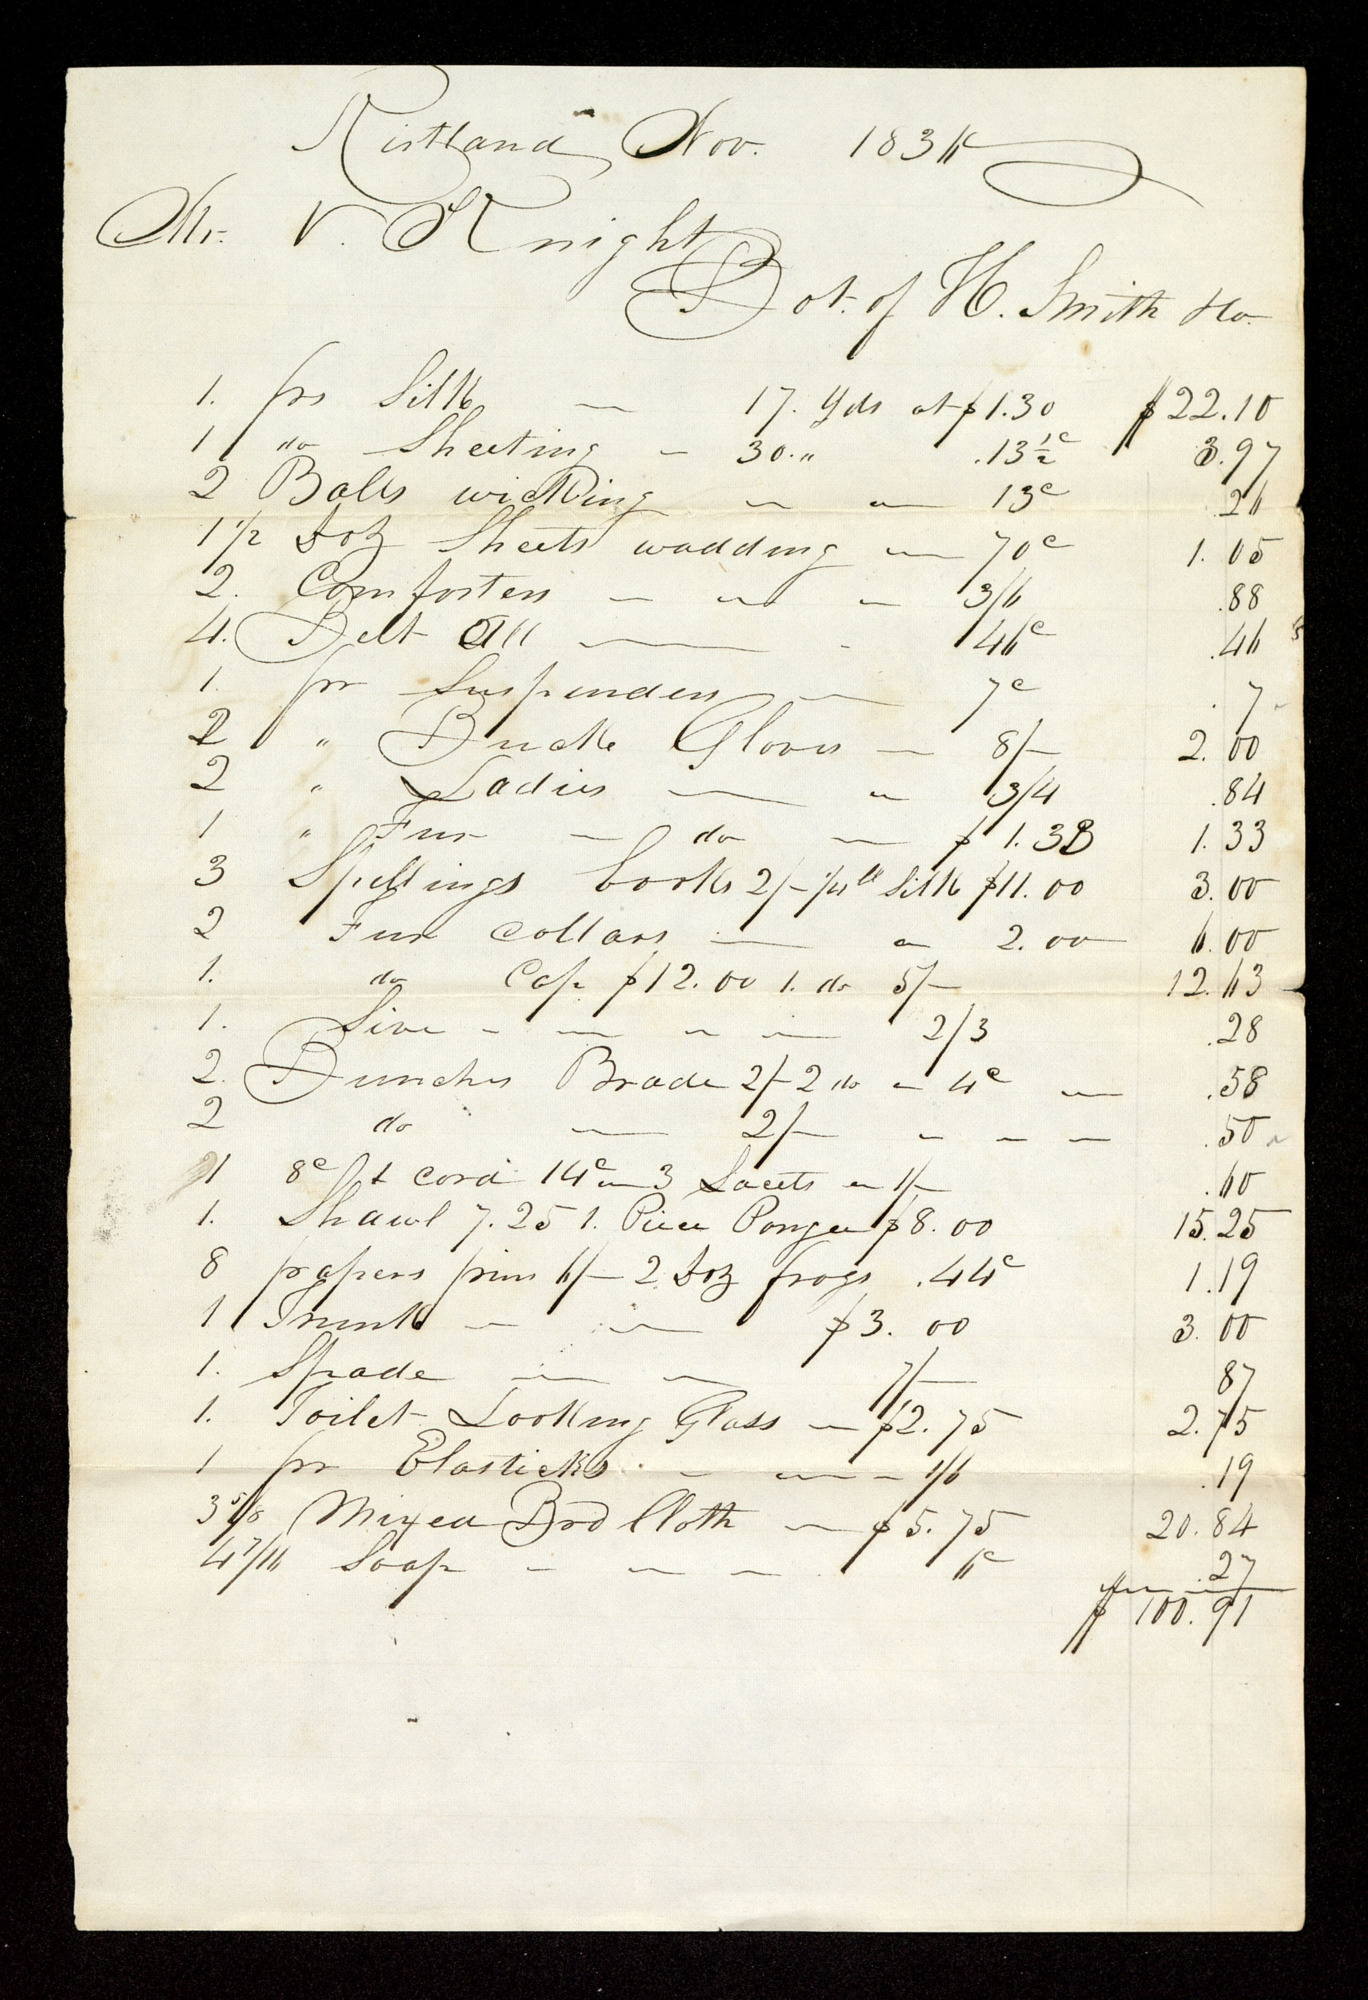 Kirtland Nov. 1836
Mr. V. Knight
Bot. of H. Smith & Co.
1. ps Silk — 17. Yds at $1.30 $22.10
1 " do Sheeting — 30. " .13½c 3.97
2 Balls wicking — — 13c .26
1 1/2 Doz Sheets wadding — 70c 1.05
2. Comforters — — — 3/6 .88
4. Belt — 46c .46
1. pr Suspenders — 7c .7
2 " Buck Gloves — 8/– 2.00
2 " Ladies — " 3/4 .84
1 " Fur — do — $1.33 1.33
3 Spellings books 2/– Silk $11.00 3.00
2 Fur Collars — — 2.00 6.00
1. do Cap $12.00 1. do 5/– 12.63
1. Sive – — – — 2/3 .28
2. Bunches Brade 2/– 2 do – 4c — .58
2 do — 2/– – – — .50
1 8c cord 14c — 3 Lacets – 1/– .60
1. Shawl 7.25 1. Piece Pongee $8.00 15.25
8 papers pins 6/– 2 Doz frogs .44c 1.19
1 Trunk — — $3.00 3.00
1. Spade — — 7/– 87
1. Toilet Looking Glass — $2.75 2.75
1 pr Elasticks. – — – 1/6 .19
3 5/8 Mixed Brd Cloth — $5.75 20.84
4 7/16 Soap – – — . 6c .27
$ 100.91